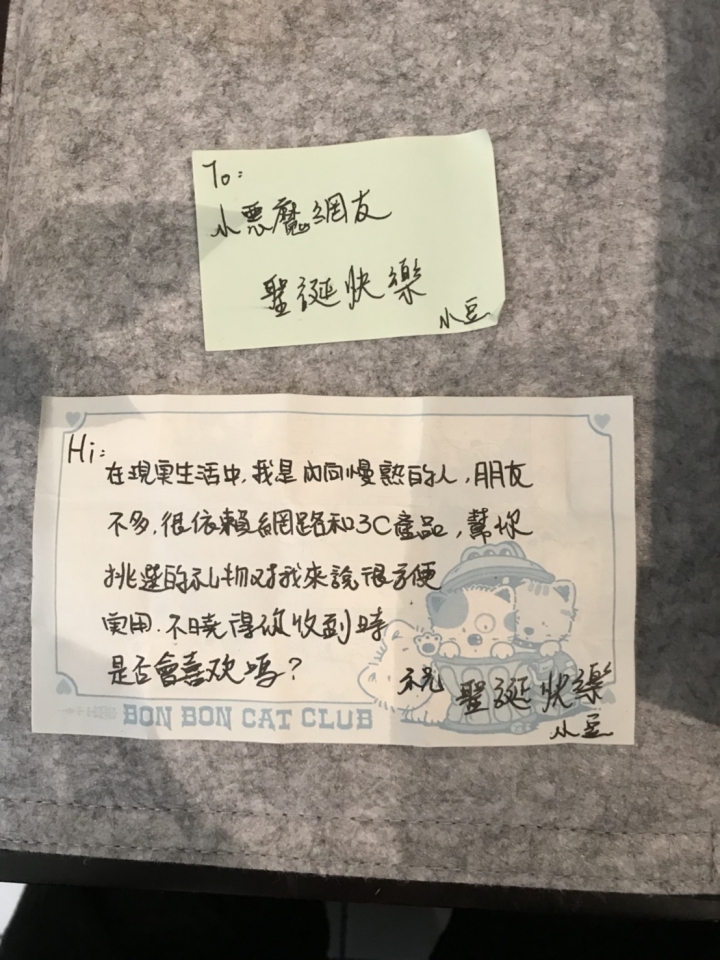 To:
小惡魔網友
聖誕快樂
小豆
Hi:
在現實生活中,我是內向慢熟的人,朋友
不多,很依賴網路和3C產品,幫你
挑選的礼物对我來說很方便
實用.不曉得你收到時
是否會喜欢嗎?
祝 聖誕快樂
小豆
BON BON CAT CLUB